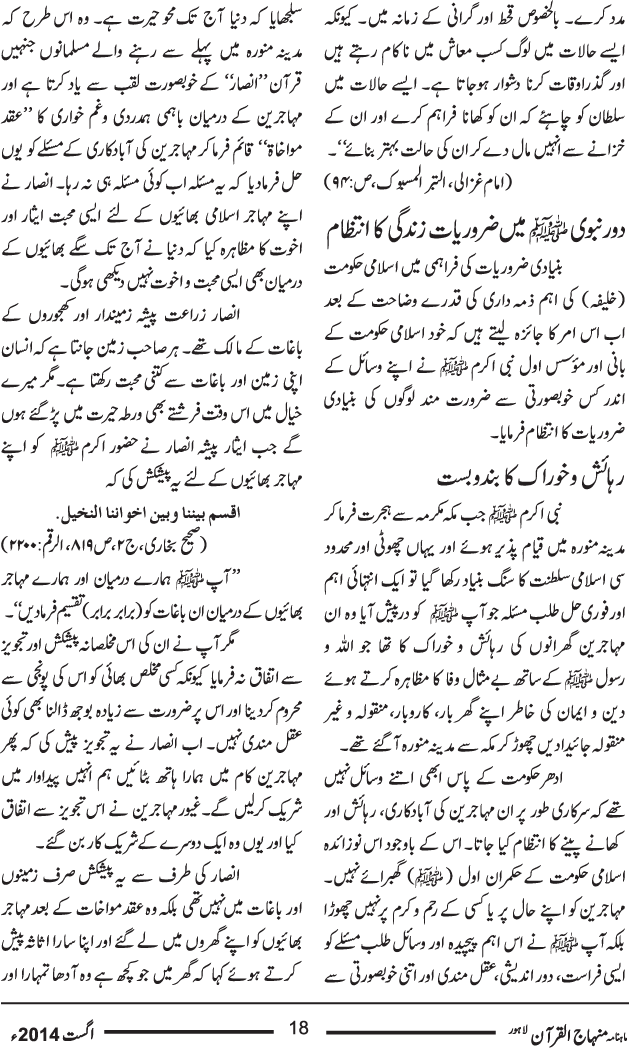 مدد کرے۔ بالخصوص قحط اور گرانی کے زمانہ میں۔ کیونکہ
ایسے حالات میں لوگ کسب معاش میں ناکام رہتے ہیں
اور گذر اوقات کرنا دشوار ہوجاتا ہے۔ ایسے حالات میں
سلطان کو چاہئے کہ ان کو کھانا فراہم کرے اور ان کے
خزانے سے انہیں مال دے کر ان کی حالت بہتر بنائے‘‘۔
(امام غزالی، التبر المسبوک، ص:۹۴)
دور نبوی ﷺ میں ضروریات زندگی کا انتظام
بنیادی ضروریات کی فراہمی میں اسلامی حکومت
(خلیفہ) کی اہم ذمہ داری کی قدرے وضاحت کے بعد
اب اس امر کا جائزہ لیتے ہیں کہ خود اسلامی حکومت کے
بانی اور مؤسس اول نبی اکرم ﷺ نے اپنے وسائل کے
اندر کس خوبصورتی سے ضرورت مند لوگوں کی بنیادی
ضروریات کا انتظام فرمایا۔
رہائش و خوراک کا بندوبست
نبی اکرم ﷺ جب مکہ مکرمہ سے ہجرت فرما کر
مدینہ منورہ میں قیام پذیر ہوئے اور یہاں چھوٹی اور محدود
سی اسلامی سلطنت کا سنگ بنیاد رکھا گیا تو ایک انتہائی اہم
اور فوری حل طلب مسئلہ جو آپ ﷺ کو درپیش آیا وہ ان
مہاجرین گھرانوں کی رہائش و خوراک کا تھا جو اللہ و
رسول ﷺ کے ساتھ بے مثال وفا کا مظاہرہ کرتے ہوئے
دین و ایمان کی خاطر اپنے گھر بار، کاروبار، منقولہ و غیر
منقولہ جائیدادیں چھوڑ کر مکہ سے مدینہ منورہ آگئے تھے۔
ادھر حکومت کے پاس ابھی اتنے وسائل نہیں
تھے کہ سرکاری طور پر ان مہاجرین کی آبادکاری، رہائش اور
کھانے پینے کا انتظام کیا جاتا۔ اس کے باوجود اس نوزائدہ
اسلامی حکومت کے حکمران اول (ﷺ) گھبرائے نہیں۔
مہاجرین کو اپنے حال پر یا کسی کے رحم و کرم پر نہیں چھوڑا
بلکہ آپ ﷺ نے اس اہم پیچیدہ اور وسائل طلب مسئلے کو
ایسی فراست، دور اندیشی، عقل مندی اور اتنی خوبصورتی سے
سلجھایا کہ دنیا آج تک محو حیرت ہے۔ وہ اس طرح کہ
مدینہ منورہ میں پہلے سے رہنے والے مسلمانوں جنہیں
قرآن ’’انصار‘‘ کے خوبصورت لقب سے یاد کرتا ہے اور
مہاجرین کے درمیان باہمی ہمدردی و غم خواری کا ’’عقد
مواخاۃ‘‘ قائم فرما کر مہاجرین کی آبادکاری کے مسئلے کو یوں
حل فرمادیا کہ یہ مسئلہ اب کوئی مسئلہ ہی نہ رہا۔ انصار نے
اپنے مہاجر اسلامی بھائیوں کے لئے ایسی محبت ایثار اور
اخوت کا مظاہرہ کیا کہ دنیا نے آج تک سگے بھائیوں کے
درمیان بھی ایسی محبت و اخوت نہیں دیکھی ہوگی۔
انصار زراعت پیشہ زمیندار اور کھجوروں کے
باغات کے مالک تھے۔ ہر صاحب زمین جانتا ہے کہ انسان
اپنی زمین اور باغات سے کتنی محبت رکھتا ہے۔ مگر میرے
خیال میں اس وقت فرشتے بھی ورطہ حیرت میں پڑ گئے ہوں
گے جب ایثار پیشہ انصار نے حضور اکرم ﷺ کو اپنے
مہاجر بھائیوں کے لئے یہ پیشکش کی کہ
اقسم بیننا وبین اخواننا النخیل.
(صحیح بخاری، ج۲، ص۸۱۹، الرقم:۲۲۰۰)
’’آپ ﷺ ہمارے درمیان اور ہمارے مہاجر
بھائیوں کے درمیان ان باغات کو (برابر برابر) تقسیم فرمادیں‘‘۔
مگر آپ نے ان کی اس مخلصانہ پیشکش اور تجویز
سے اتفاق نہ فرمایا کیونکہ کسی مخلص بھائی کو اس کی پونجی سے
محروم کردینا اور اس پر ضرورت سے زیادہ بوجھ ڈالنا بھی کوئی
عقل مندی نہیں۔ اب انصار نے یہ تجویز پیش کی کہ پھر
مہاجرین کام میں ہمارا ہاتھ بٹائیں ہم انہیں پیداوار میں
شریک کرلیں گے۔ غیور مہاجرین نے اس تجویز سے اتفاق
کیا اور یوں وہ ایک دوسرے کے شریک کار بن گئے۔
انصار کی طرف سے یہ پیشکش صرف زمینوں
اور باغات میں نہیں تھی بلکہ وہ عقد مواخات کے بعد مہاجر
بھائیوں کو اپنے گھروں میں لے گئے اور اپنا سارا اثاثہ پیش
کرتے ہوئے کہا کہ گھر میں جو کچھ ہے وہ آدھا تمہارا اور
ماہنامہ منہاج القرآن لاہور 18 اگست 2014ء